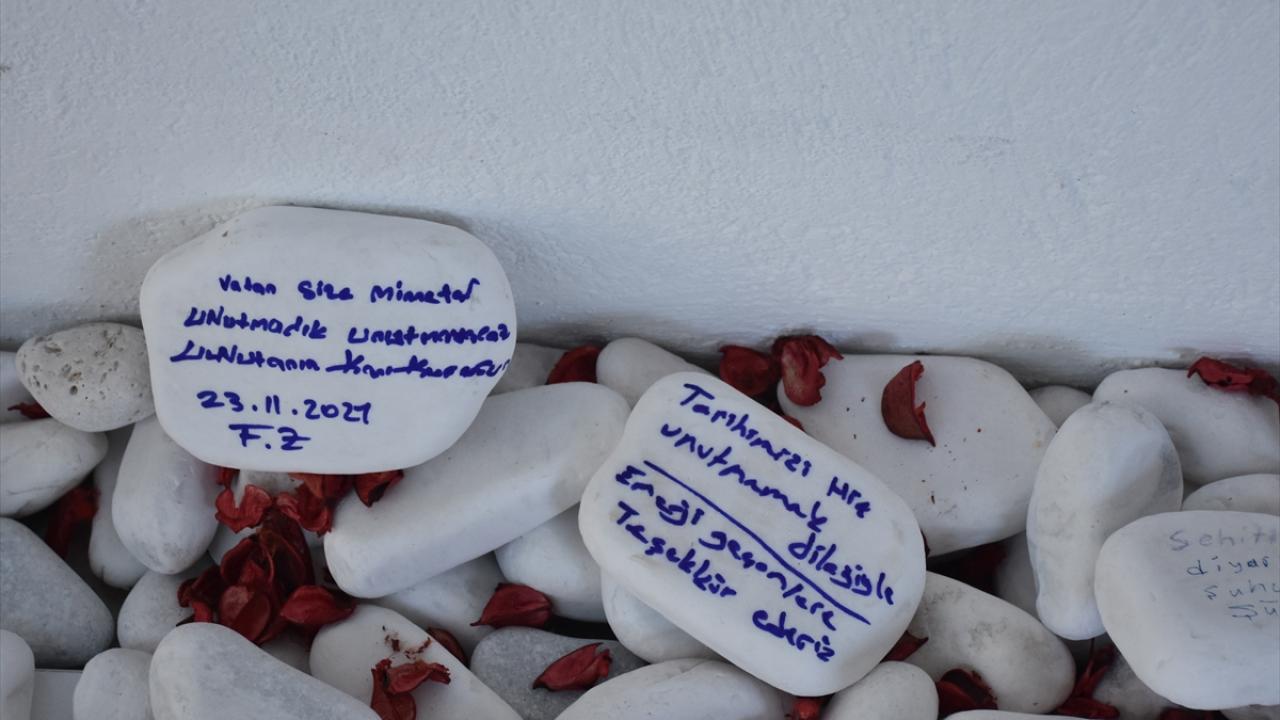 Vatan size minnetar
UNutmadık unutmayacağız
UNutanın
23.11.2021
F.Z
Tarihimizi Hiç
unutmamak dileğiyle
Emeği geçenlere
Teşekkür ederiz
Şehit
diyar